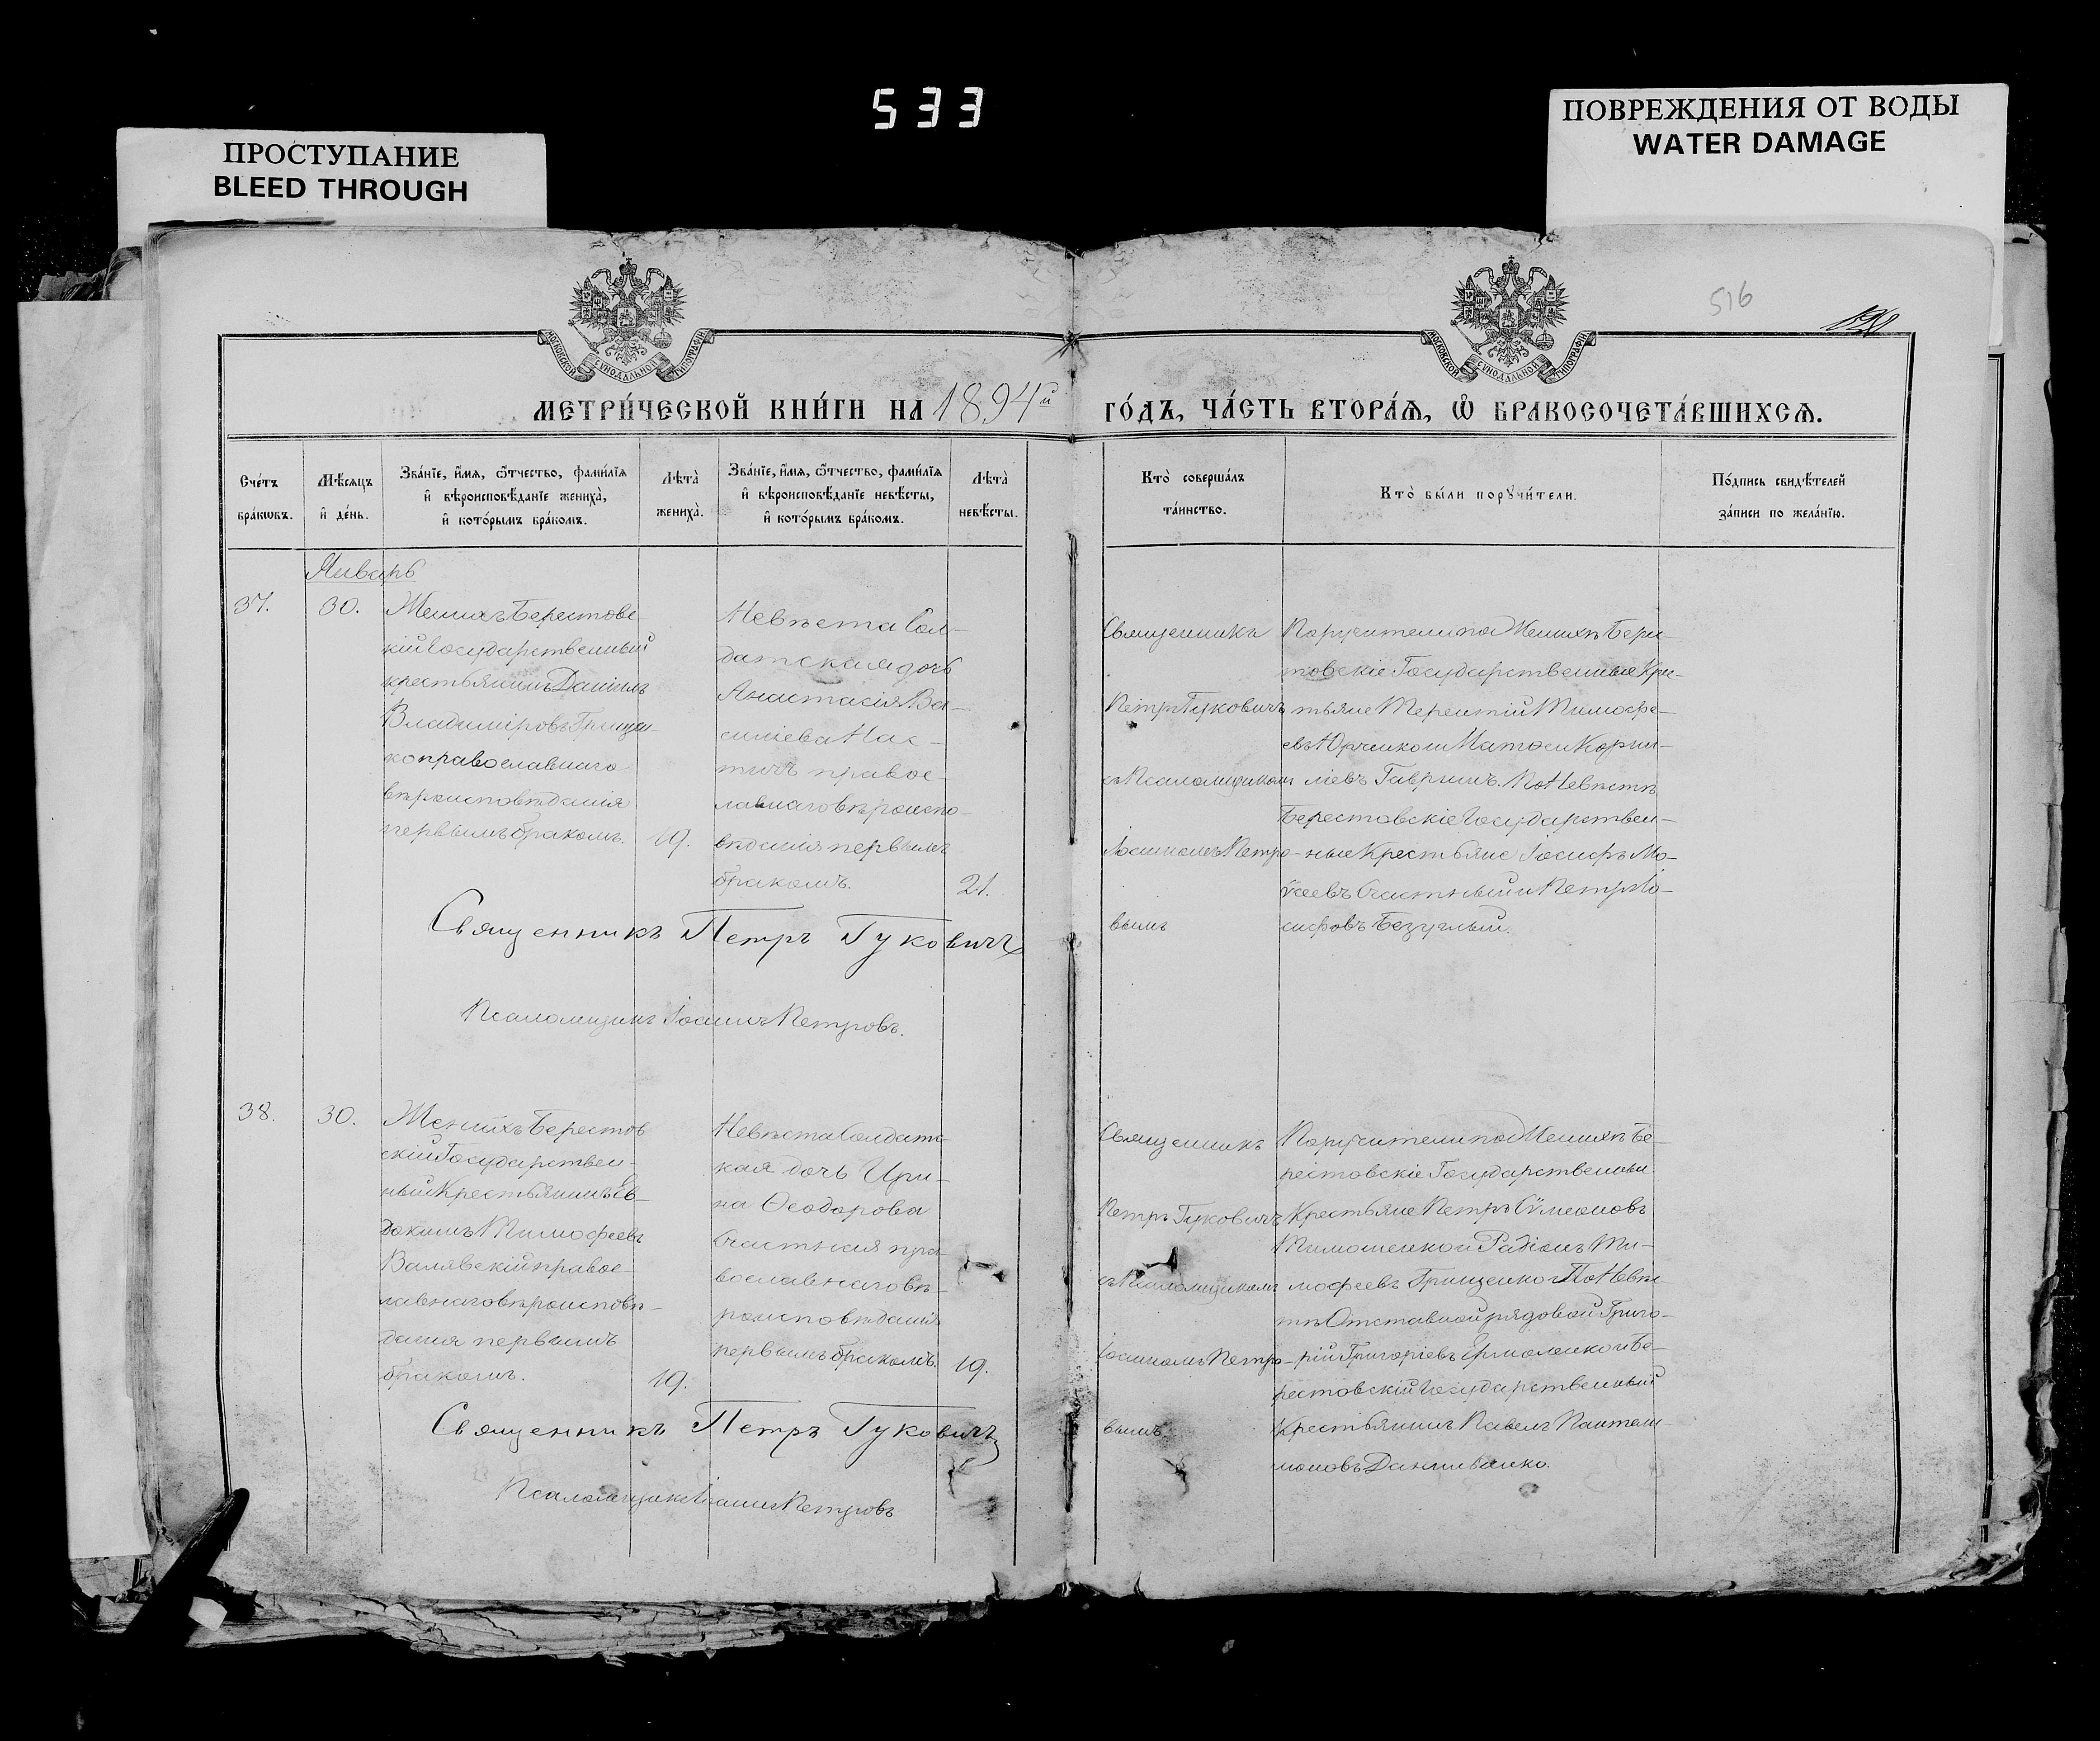 533
ПРОСТУПАНИЕ
BLEED THROUGH
ПОВРЕЖДЕНИЯ ОТ ВОДЫ
WATER DAMAGE
516
МОСКОВСКОЙ СѴНОДАЛЬНОЙ ТИПОГРАФІИ
МОСКОВСКОЙ СѴНОДАЛЬНОЙ ТИПОГРАФІИ
МЕТРИ́ЧЕСКОЙ КНИ́ГИ НА 1894й ГО́ДЪ, ЧА́СТЬ ВТОРА́Ѧ, Ѽ БРАКОСОЧЕТА́ВШИХСѦ.
Сче́тъ
бра́кѡвъ.
Мѣ́сѧцъ
и҆ де́нь.
Зва́нїе, и҆́мѧ, ѻ҆́тчество, фами́лїѧ
и҆ вѣроисповѣ́данїе жениха̀,
и҆ кото́рымъ бра́комъ.
Лѣта̀
жениха̀.
Зва́нїе, и҆́мѧ, ѻ҆́тчество, фами́лїѧ
и҆ вѣроисповѣ́данїе невѣ́сты,
и҆ кото́рымъ бра́комъ.
Лѣта̀
невѣ́сты.
Кто̀ соверша́лъ
та́инство.
Кто̀ бы́ли порꙋчи́тели.
По́дпись свидѣ́телей
за́писи по жела́нїю.
Январь
37.
30.
Женихъ Берестовс
кій Государственный
крестьянинъ Даніилъ
Владиміровъ Грищен
ко православнаго
вѣроисповѣданія
первымъ бракомъ.
19.
Невѣста Сол-
датская дочь
Анастасія Ва-
силіева Нас-
тичъ правос-
лавнаго вѣроиспо-
вѣданія первымъ
бракомъ.
21.
Священникъ
Петръ Гуковичъ
съ Псаломщикомъ
Іоанномъ Петро-
вымъ
Поручители по Женихѣ Бере-
стовскіе Государственные Кре-
стьяне Терентій Тимофе-
евъ Юрченко и Матѳей Корни-
ліевъ Гавришъ. По Невѣстѣ
Берестовскіе Государствен-
ные Крестьяне Іосифъ Мо-
ѵсеевъ Счастный и Петръ Іо-
сифовъ Безуглый.
Священникъ Петръ Гуковичъ
Псаломщикъ Іоаннъ Петровъ.
38.
30.
Женихъ Берестов
скій Государствен-
ный Крестьянинъ Ев-
докимъ Тимофеевъ
Валявскій правос-
лавнаго вѣроисповѣ-
данія первымъ
бракомъ.
19.
Невѣста Солдатс-
кая дочь Ири-
на Ѳеодорова
Счастная пра-
вославнаго вѣ-
роисповѣданія
первымъ бракомъ.
19.
Священникъ
Петръ Гуковичъ
съ Псаломщикомъ
Іоанномъ Петро-
вымъ
Поручители по Женихѣ Бе-
рестовскіе Государственные
Крестьяне Петръ Сѵмеоновъ
Тимошенко и Радіонъ Ти-
мофеевъ Грищенко. По Невѣс-
тѣ Отставной рядовой Григо-
рій Григоріевъ Ермоленко и Бе-
рестовскій Государственный
Крестьянинъ Павелъ Пантели-
моновъ Данильченко.
Священникъ Петръ Гуковичъ
Псаломщикъ Іоаннъ Петровъ